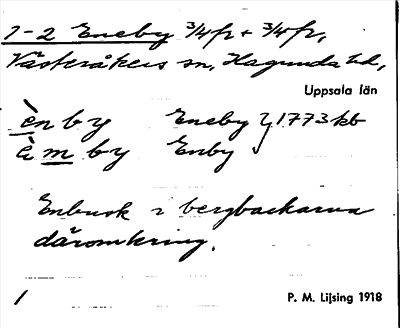 1-2 Eneby 3/4 fr + 3/4 fr,
Västeråkers sn, Hagunda hd,
Uppsala län
ènby Eneby } 1773 kb
èmby Enby
Enbusk i bergbackarna
däromkring.
1 P. M. Lijsing 1918